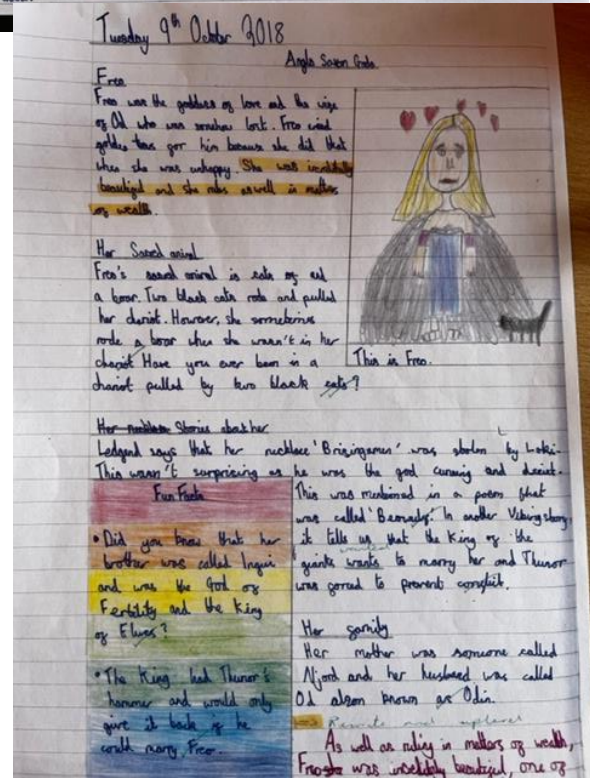 Tuesday 9th October 2018
Anglo Saxon Gods
Freo
Freo was the goddess of love and the wife
of Od who was somehow lost. Freo cried
golden tears for him because she did that
when she was unhappy. She was incredibly
beautiful and she rules aswell in matters
of wealth.
Her Sacred animal
Freo's sacred animal is cats of and
a boar. Two black cats rode and pulled
her chariot. However, she sometimes
rode a boar when she wasn't in her
chariot Have you ever been in a
chariot pulled by two black cats?
This is Freo.
Her necklace Stories about her
Ledgend says that her necklace 'Brisingamen' was stolen by Loki.
This wasn't surprizing as he was the god cunning and deceit.
This was mentioned in a poem that
was called In another Viking story,
it tells us that the King of the
wanted
giants wants to marry her and Thunor
was forced to prevent conflict.
Fun Facts
• Did you know that her
brother was called Ingui
and was the God of
Fertility and the King
of Elves?
• The King had Thunor's
hammer and would only
give it back if he
could marry Freo.
Her family
Her mother was someone called
Njord and her husband was called
Od alson known as Odin.
As well as ruling in matters of wealth,
was incredibly beautiful, one of